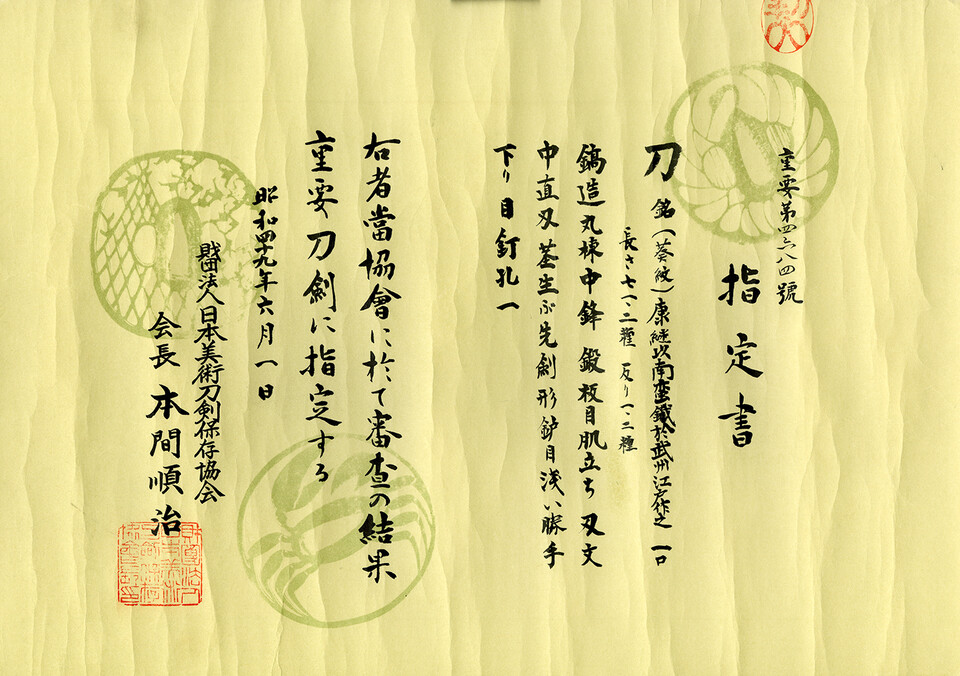 重要第四六八四號
指定書
刀 銘(葵紋)康継以南蛮鐵於武州江戸作之 一口
長さ七一・二糎 反り一・二糎
鎬造丸棟中鋒 鍛板目肌立ち 刃文
中直刃 茎生ぶ先剣形鑢目浅い勝手
下り目釘孔一
右者當協會に於て審査の結果
重要刀剣に指定する
昭和四十九年六月一日
財団法人日本美術刀剣保存協会
会長 本間順治